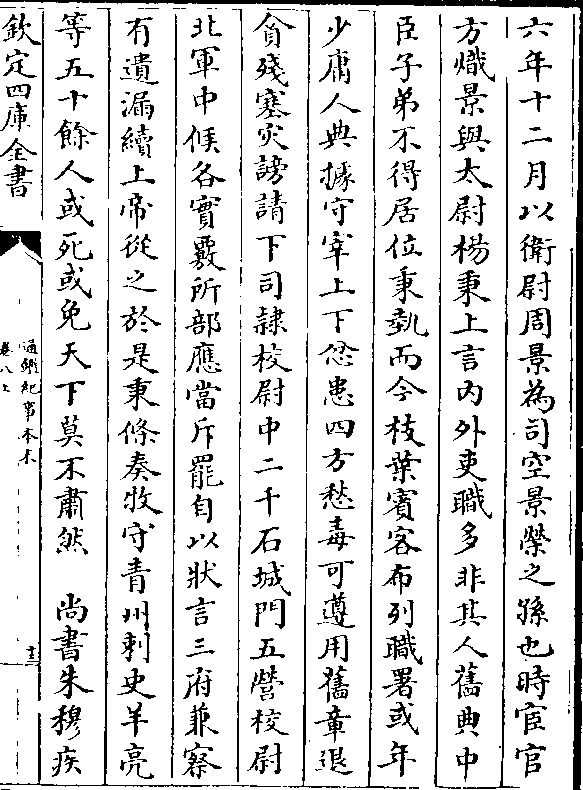 六年十二月以衛尉周景為司空景榮之孫也時宦官
方熾景與太尉楊秉上言内外吏職多非其人舊典中
臣子弟不得居位秉埶而今枝葉賓客布列職署或年
少庸人典據守宰上下忿患四方愁毒可遵用舊章退
貪殘塞災謗請下司隸校尉中二千石城門五營校尉
北軍中候各實覈所部應當斥罷自以狀言三府兼察
有遺漏續上帝從之於是秉條奏牧守青州刺史羊亮
等五十餘人或死或免天下莫不肅然　尚書朱穆疾
欽定四庫全書
通鑑紀事本末
卷八上
十三